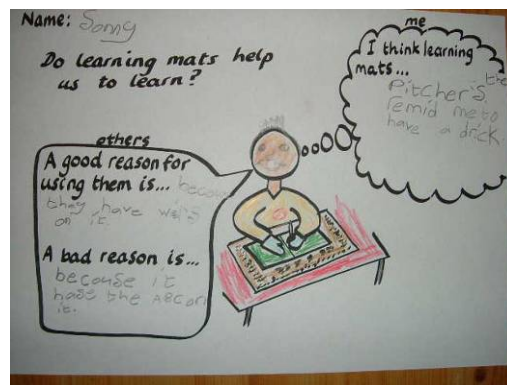 Name: Sonny
Do learning mats help
us to learn?
me
I think learning
mats... the
Pitcher's
remid me to
have a drick
others
A good reason for
using them is... becouse
they have
on it.
A bad reason is...
becouse it
hase the ABC on
it.